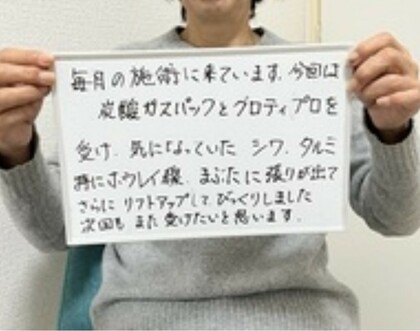 毎月の施術に来ています。今回は
炭酸ガスパックとグロティプロを
受け、気になっていた シワ、タルミ
特にホウレイ線、まぶたに張りが出て
さらに リフトアップして びっくりしました
次回も また受けたいと思います。